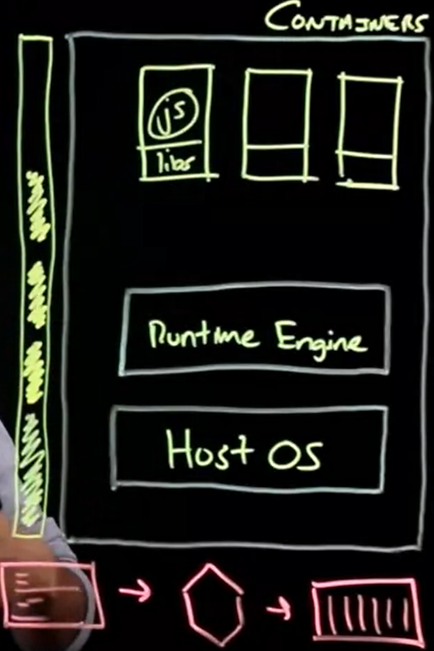 CONTAINERS
JS
libs
Runtime Engine
Host OS